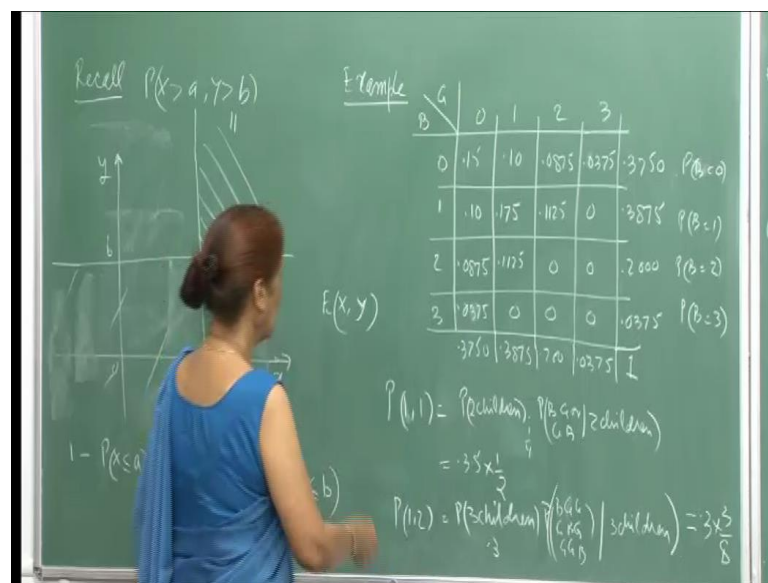 Recall P(X > a, Y > b)
y
b
x
1 - P(X ≤ a)
≤ b)
E(X, Y)
Example
G
B 0 1 2 3
0 .15 .10 .0875 .0375 .3750 P(B=0)
1 .10 .175 .1125 0 .3875 P(B=1)
2 .0875 .1125 0 0 .2000 P(B=2)
3 .0375 0 0 0 .0375 P(B=3)
.3750 .3875 .200 .0375 1
P(1,1) = P(2 children). P(BG or GB | 2 children)
= .35 x 1/2
P(1,2) = P(3 children) P(BGG GBG GGB | 3 children) = .3 x 3/8
.3